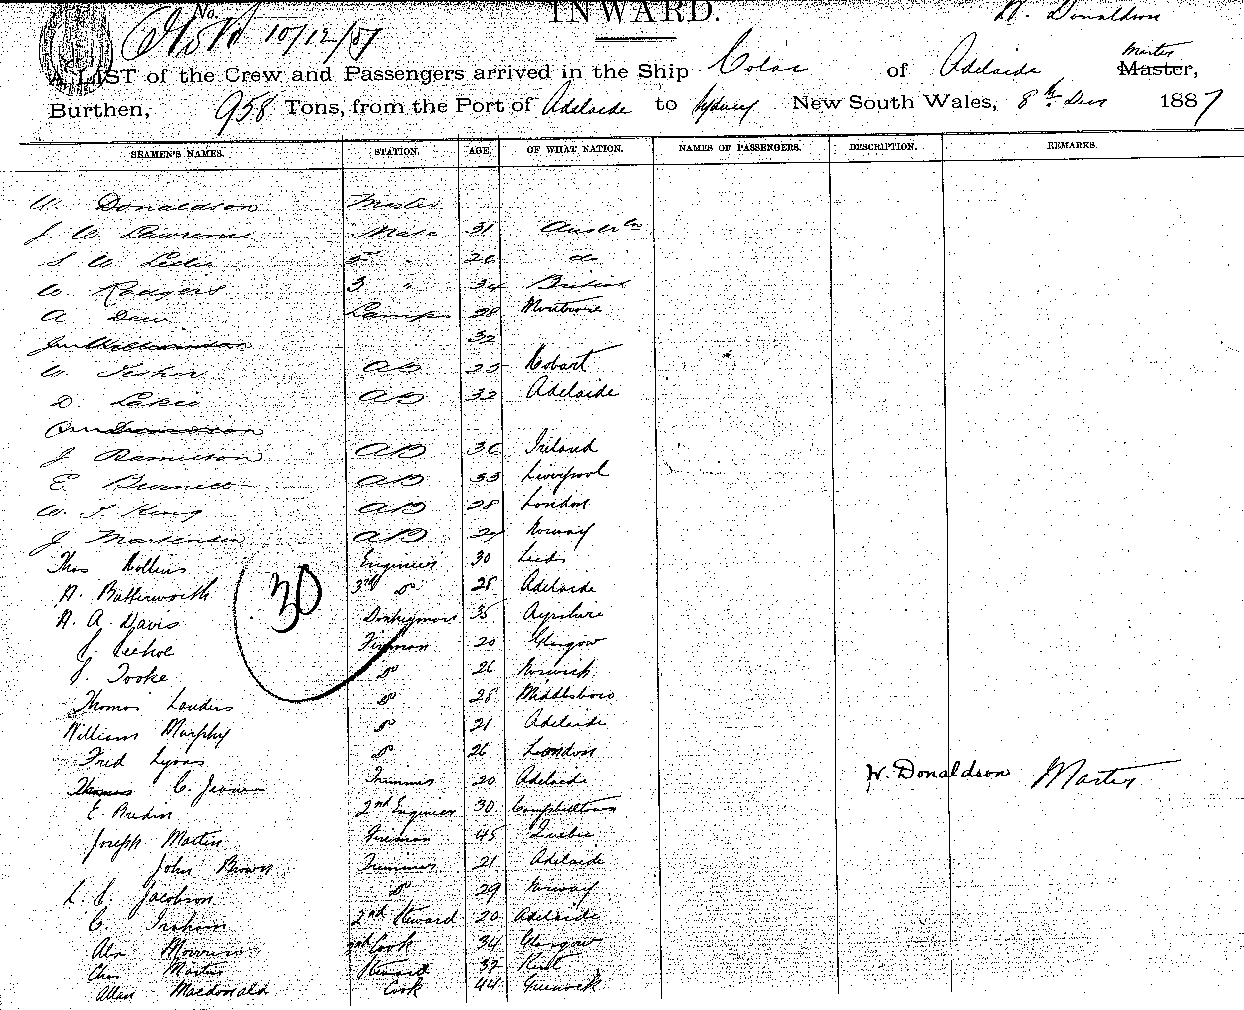 No.
10/12/87
INWARD.
W. Donaldson
A LIST of the Crew and Passengers arrived in the Ship Colac of Adelaide Master Master,
Burthen, 958 Tons, from the Port of Adelaide to Sydney New South Wales, 8th Decr 1887
SEAMEN'S NAMES. STATION. AGE OF WHAT NATION. NAMES OF PASSENGERS. DESCRIPTION. REMARKS.
W. Donaldson Master
J W Lawrence Mate 31
S W Leslie 2 " 26 do
W. Rodgers 3 " 34 British
A Dew Lamps 28 Montrose
32
W. Fisher AB 25 Hobart
D. Lakie AB 32 Adelaide
J AB 36 Ireland
E. Bennett AB 33 Liverpool
W. T King AB 28 London
J Martensen AB 29 Norway
Thos Rollins Engineer 30 Leeds
H. Butterworth 3rd Do 28 Adelaide
30
H. A. Davis Donkeyman 35 Ayrshire
J. Keehoe Fireman 20 Glasgow
J. Tooke Do 26 Norwich
Thomas Landers Do 28 Middlesboro
William Murphy Do 21 Adelaide
Fred Lyons Do 26 London
Thomas C. Trimmer 20 Adelaide
W. Donaldson Master
E Bredin 2nd Engineer 30 Campbelltown
Joseph Martin Fireman 45 Quebec
John Brown Trimmer 21 Adelaide
L. C. Jacobson Do 29 Norway
C. Graham 2nd Steward 20 Adelaide
Alex Morrison 2nd Cook 34 Glasgow
Chas Martin Steward 37 Kent
Allan Macdonald Cook 44 Greenock